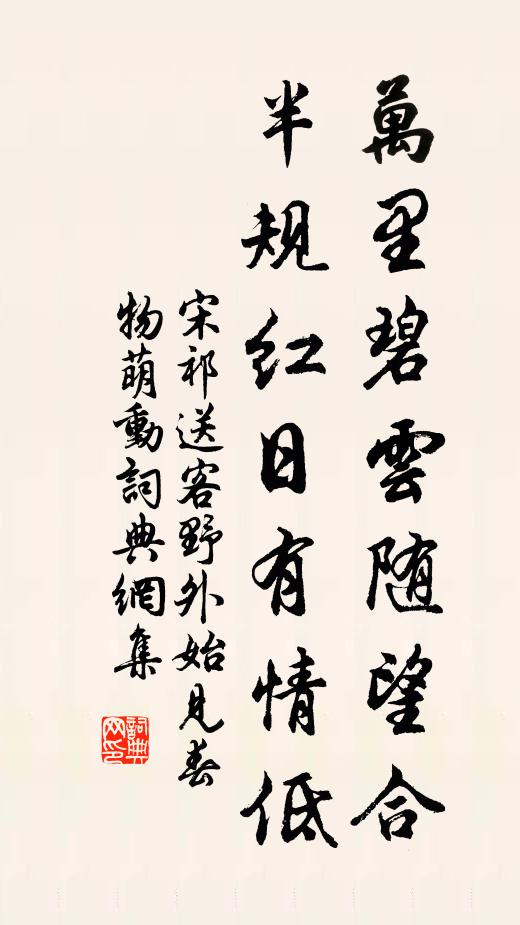 萬里碧雲随望合
半規紅日有情低
宋祁送客野外始見春
物萌動詞典網集
詞典网印